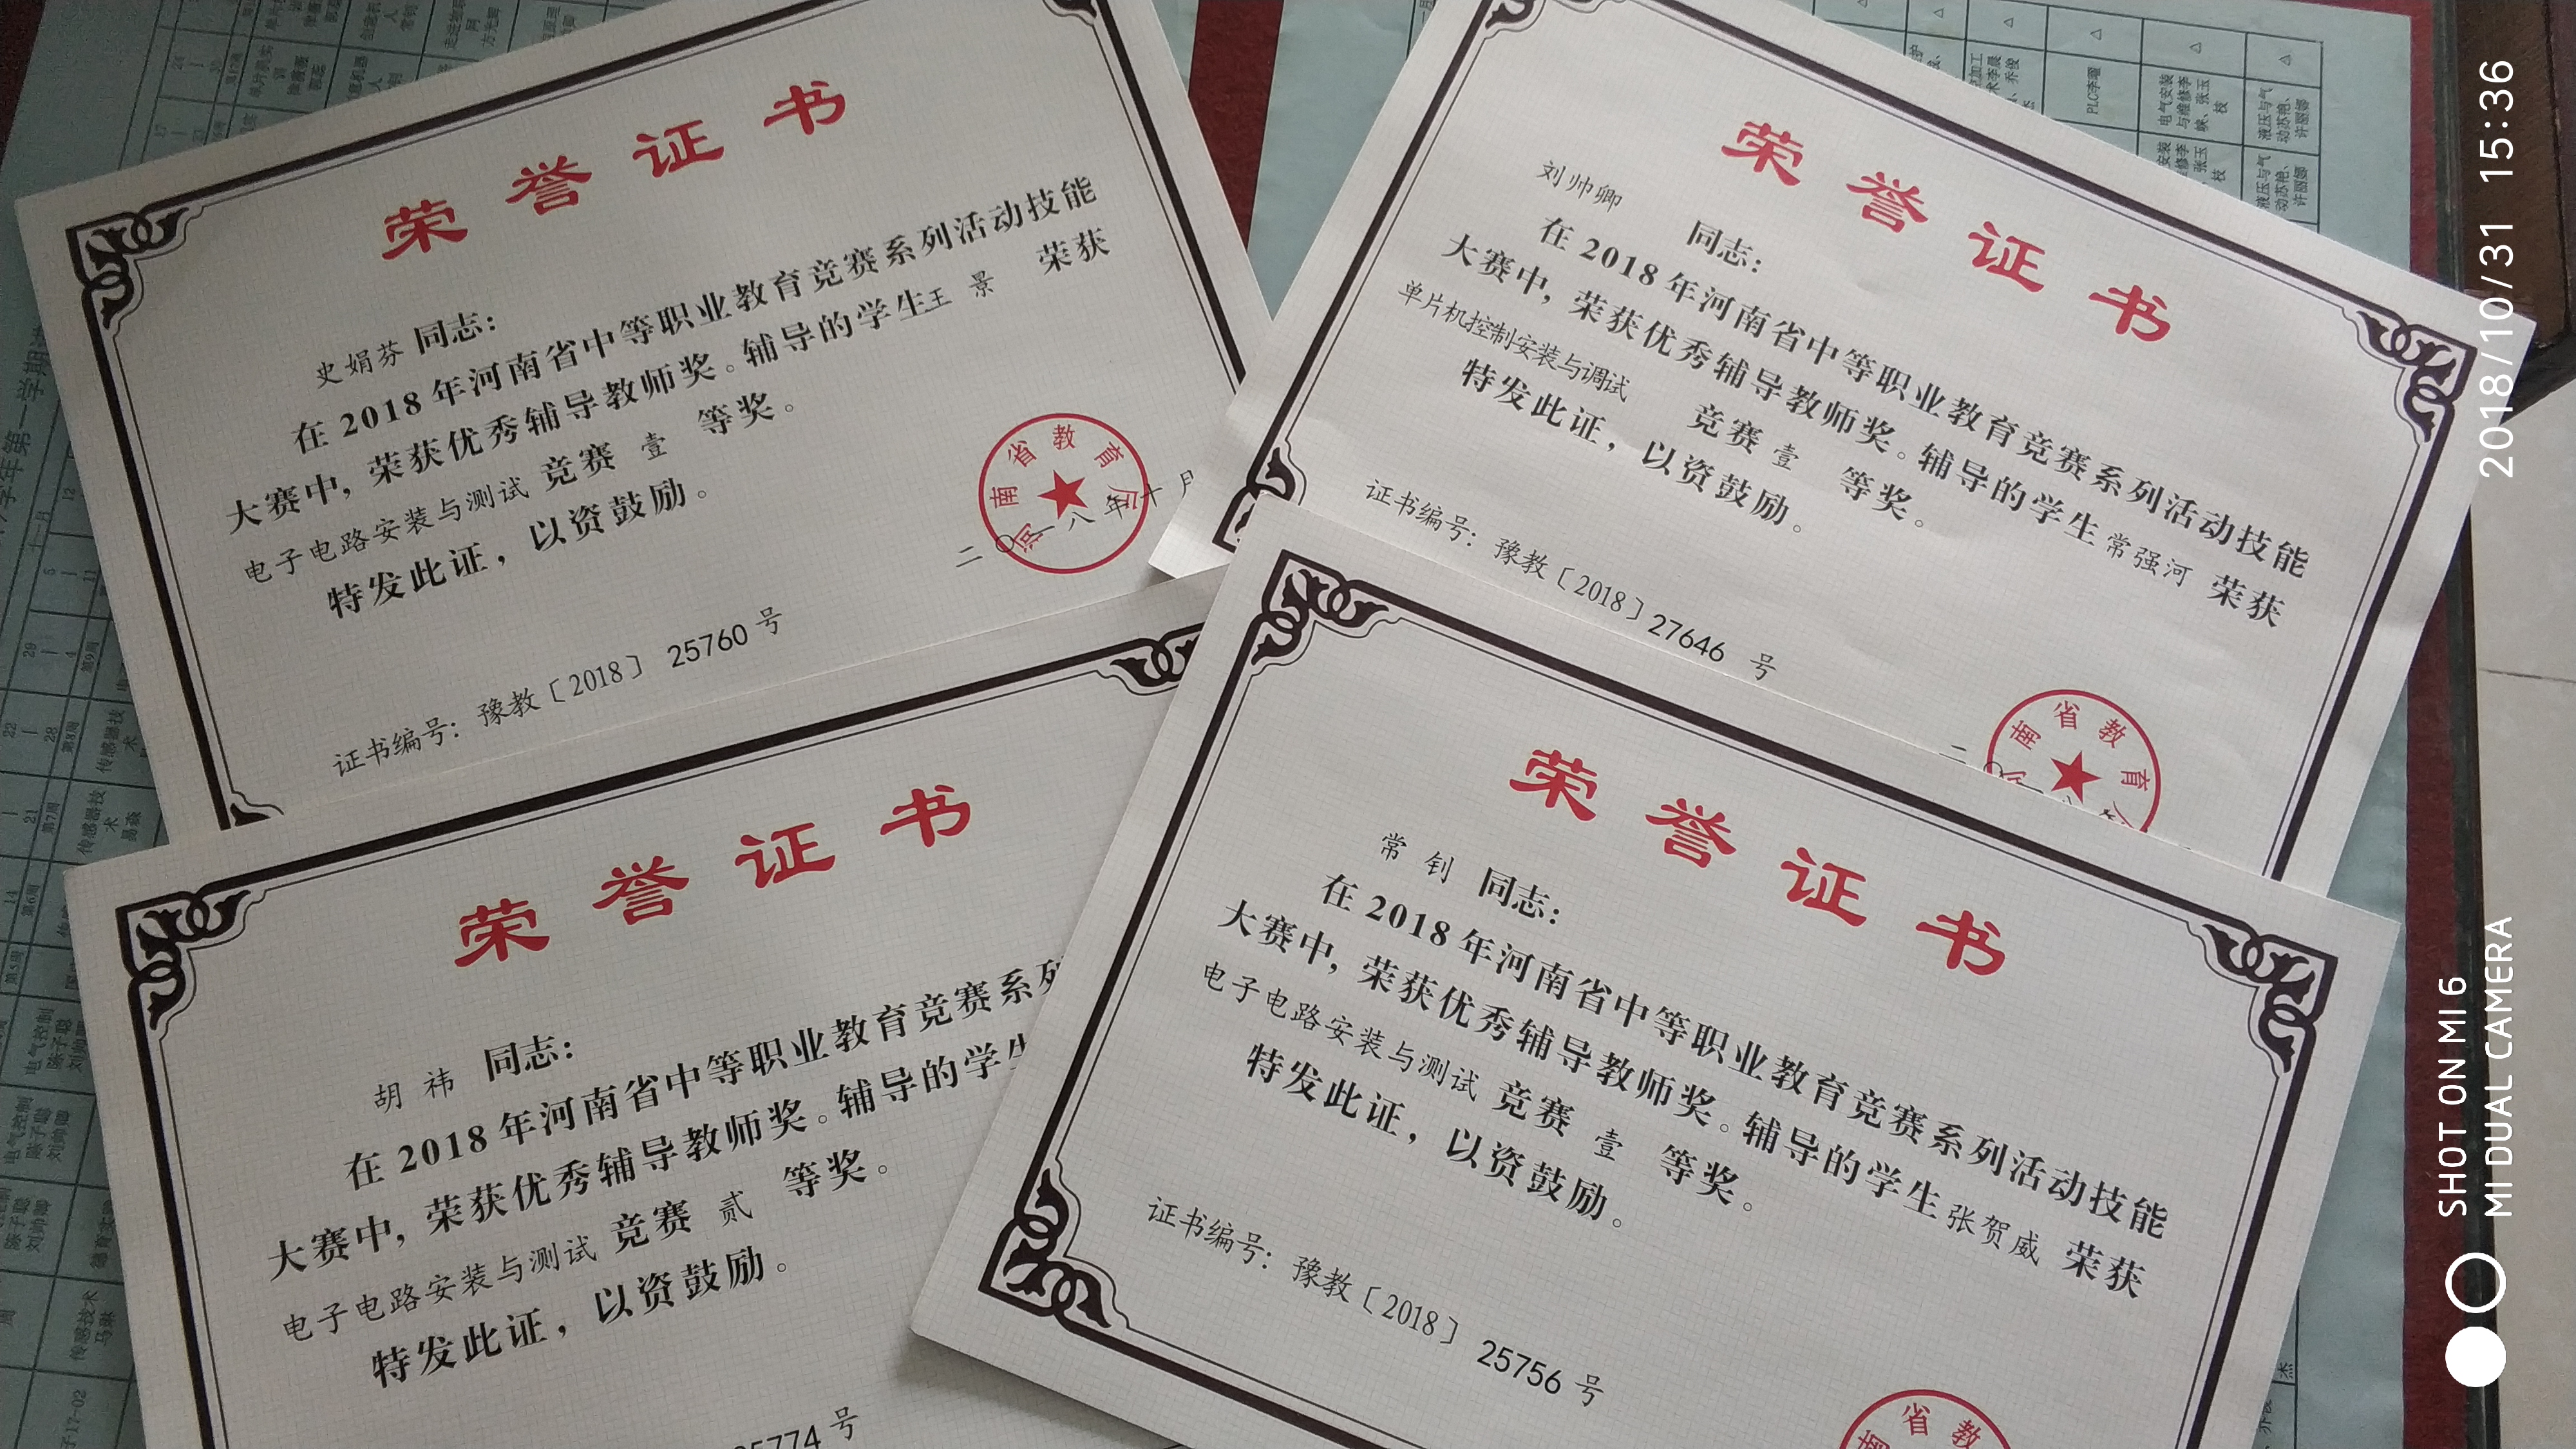 荣誉证书
史娟芬 同志：
在 2018 年河南省中等职业教育竞赛系列活动技能
大赛中，荣获优秀辅导教师奖。辅导的学生王 景 荣获
电子电路安装与测试 竞赛 壹 等奖。
特发此证，以资鼓励。
证书编号：豫教〔2018〕25760 号
河南省教育厅
二〇一八年十月
荣誉证书
刘帅卿 同志：
在 2018 年河南省中等职业教育竞赛系列活动技能
大赛中，荣获优秀辅导教师奖。辅导的学生常强河 荣获
单片机控制安装与调试 竞赛 壹 等奖。
特发此证，以资鼓励。
证书编号：豫教〔2018〕27646 号
南省教育
荣誉证书
胡 祎 同志：
在 2018 年河南省中等职业教育竞赛系列
大赛中，荣获优秀辅导教师奖。辅导的学生
电子电路安装与测试 竞赛 贰 等奖。
特发此证，以资鼓励。
5774 号
荣誉证书
常 钊 同志：
在 2018 年河南省中等职业教育竞赛系列活动技能
大赛中，荣获优秀辅导教师奖。辅导的学生张贺威 荣获
电子电路安装与测试 竞赛 壹 等奖。
特发此证，以资鼓励。
证书编号：豫教〔2018〕25756 号
南省教
学年第一学期
PLC李曜
电气安装
与维修李
映、张玉
枝
液压与气
动苏艳、
许丽娜
传感器技
术
易淼
电气控制
陈子聪
刘帅卿
传感技术
马琳
2018/10/31 15:36
SHOT ON MI 6
MI DUAL CAMERA